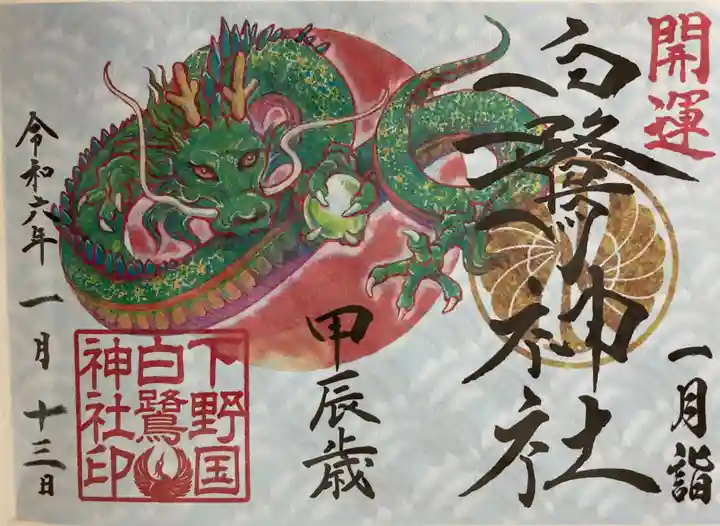 開運
一月詣
白鷺神社
甲辰歳
下野国
白鷺
神社印
令和六年 一月 十三日